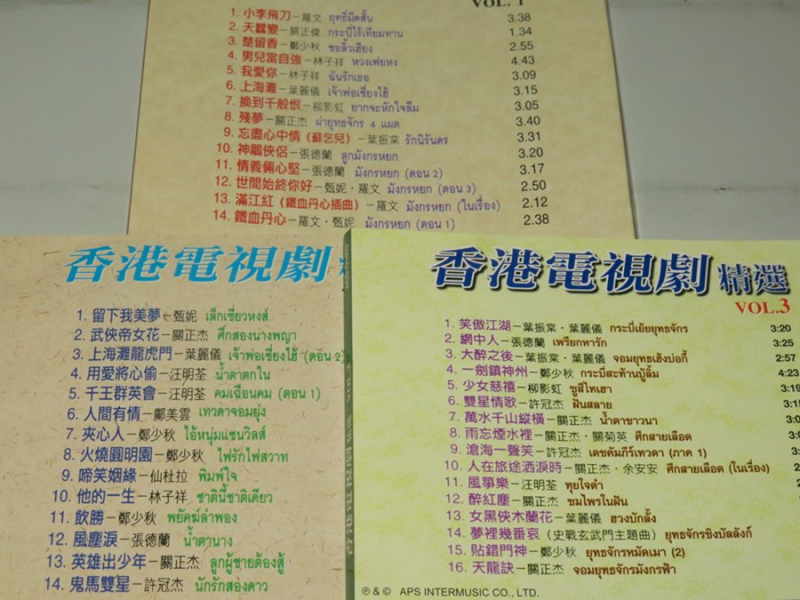 VOL. 1
1. 小李飛刀－羅文 ฤทธิ์มีดสั้น 3.38
2. 天蠶變－關正傑 กระบี่ไร้เทียมทาน 1.34
3. 楚留香－鄭少秋 ชอลิ้วเฮียง 2.55
4. 男兒當自強－林子祥 หวงเฟยหง 4.43
5. 我愛你－林子祥 ฉันรักเธอ 3.09
6. 上海灘－葉麗儀 เจ้าพ่อเซี่ยงไฮ้ 3.15
7. 換到千般恨－柳影虹 ยากจะหักใจลืม 3.05
8. 殘夢－關正杰 ผ่ายุทธจักร 4 แผด 3.40
9. 忘盡心中情（蘇乞兒）－葉振棠 รักนิรันดร 3.31
10. 神鵰俠侶－張德蘭 ลูกมังกรหยก 3.20
11. 情義倆心堅－張德蘭 มังกรหยก (ตอน 2) 3.17
12. 世間始終你好－甄妮．羅文 มังกรหยก (ตอน 3) 2.50
13. 滿江紅（鐵血丹心插曲）－羅文 มังกรหยก (ในเรื่อง) 2.12
14. 鐵血丹心－羅文．甄妮 มังกรหยก (ตอน 1) 2.38
香港電視劇
1. 留下我美夢－甄妮 เล็กเซียวหงส์
2. 武俠帝女花－關正杰 ศึกสองนางพญา
3. 上海灘龍虎門－葉麗儀 เจ้าพ่อเซี่ยงไฮ้ (ตอน 2)
4. 用愛將心偷－汪明荃 น้ำตาตกใน
5. 千王群英會－汪明荃 คมเฉือนคม (ตอน 1)
6. 人間有情－鄺美雲 เทวดาจอมยุ่ง
7. 夾心人－鄭少秋 ไอ้หนุ่มแซนวิลส์
8. 火燒圓明園－鄭少秋 ไฟรักไฟสวาท
9. 啼笑姻緣－仙杜拉 พิมพ์ใจ
10. 他的一生－林子祥 ชาตินี้ชาติเดียว
11. 飲勝－鄭少秋 พยัคฆ์ลำพอง
12. 風塵淚－張德蘭 น้ำตานาง
13. 英雄出少年－關正杰 ลูกผู้ชายต้องสู้
14. 鬼馬雙星－許冠杰 นักรักสองดาว
香港電視劇 精選
VOL.3
1. 笑傲江湖－葉振棠．葉麗儀 กระบี่เย้ยยุทธจักร 3:20
2. 網中人－張德蘭 เพรียกหารัก 3:25
3. 大醉之後－葉振棠．葉麗儀 จอมยุทธเฮ้งบ่อกี้ 2:57
4. 一劍鎮神州－鄭少秋 กระบี่สะท้านบู๊ลิ้ม 4:23
5. 少女慈禧－柳影虹 ซูสีไทเฮา
6. 雙星情歌－許冠杰 ฝันสลาย
7. 萬水千山縱橫－關正杰 น้ำตาชาวนา
8. 雨忘煙水裡－關正杰．關菊英 ศึกสายเลือด
9. 滄海一聲笑－許冠杰 เดชคัมภีร์เทวดา (ภาค 1)
10. 人在旅途洒淚時－關正杰．余安安 ศึกสายเลือด (ในเรื่อง)
11. 風箏樂－汪明荃 ทุยใจดำ
12. 醉紅塵－關正杰 ชมไพรในฝัน
13. 女黑俠木蘭花－葉麗儀 ฮวงบักลั้ง
14. 夢裡幾番哀（史戰玄武門主題曲） ยุทธจักรชิงบัลลังก์
15. 貼錯門神－鄭少秋 ยุทธจักรหมัดเมา (2)
16. 天龍訣－關正杰 จอมยุทธจักรมังกรฟ้า
Ⓟ & © APS INTERMUSIC CO., LTD.